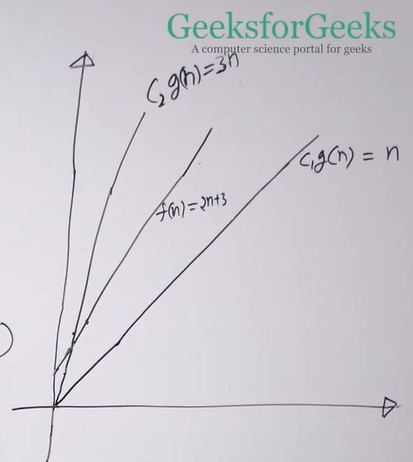 GeeksforGeeks
A computer science portal for geeks
C₂ g(n) = 3n
C₁g(n) = n
f(n) = 2n+3